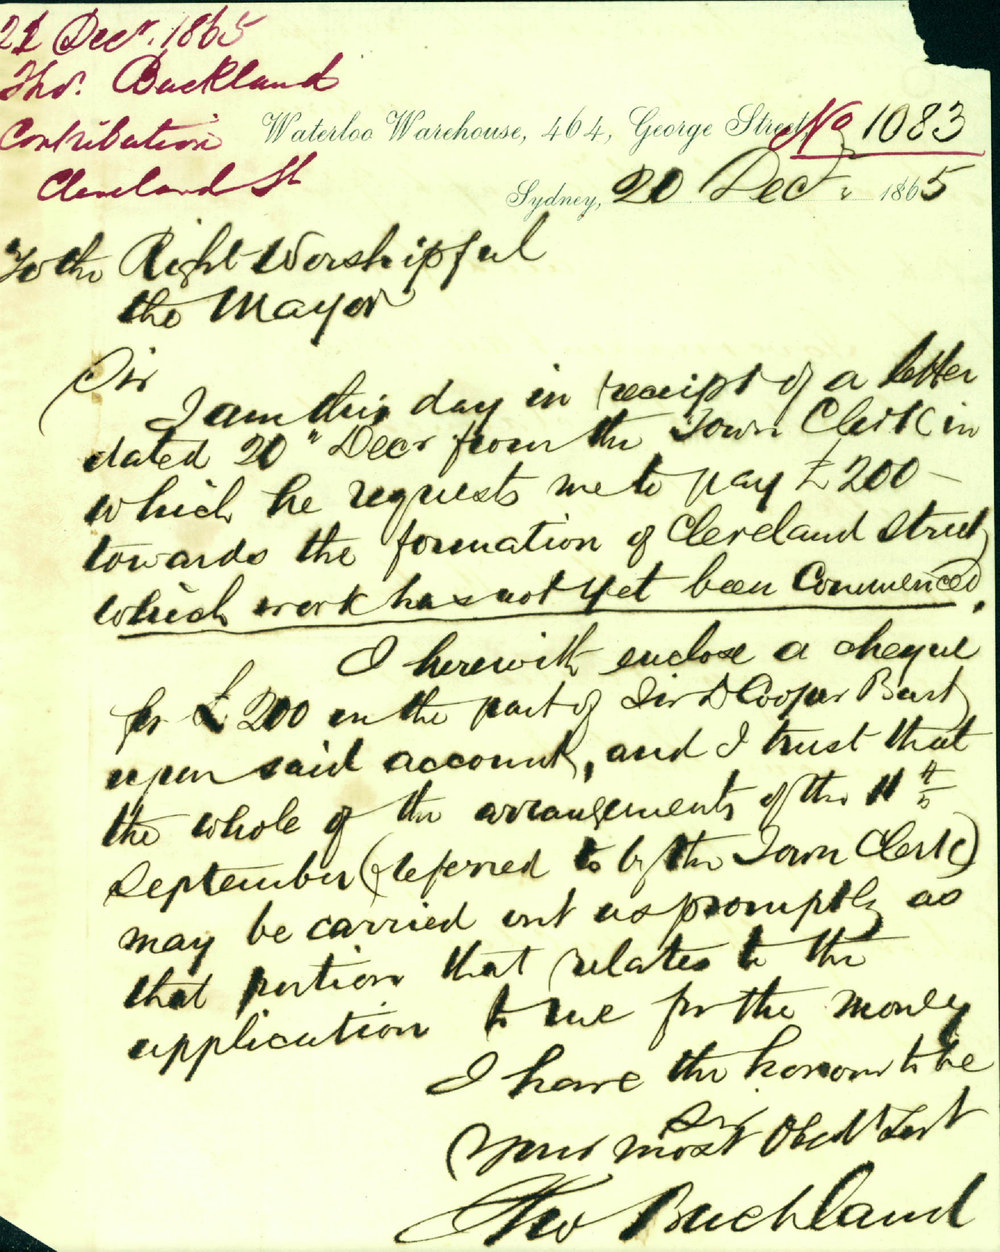 21 Decr. 1865
Thos. Buckland
Contribution
Cleveland St
No 1083
Waterloo Warehouse, 464, George Street,
Sydney, 20 Decr 1865
To the Right Worshipful
the Mayor
Sir
I am this day in receipt of a letter
dated 20" Decr from the Town Clerk in
which he requests me to pay £200 -
towards the formation of Cleveland Street,
which work has not yet been Commenced,
I herewith enclose a cheque
for £200 on the part of Sir D Cooper Bart
upon said account, and I trust that
the whole of the arrangements of the 11th
September (referred to by the Town Clerk)
may be carried out as promptly as
that portion that relates to the
application to me for the money
I have the honour to be
Sir
Your most Obedt Servt
Tho Buckland